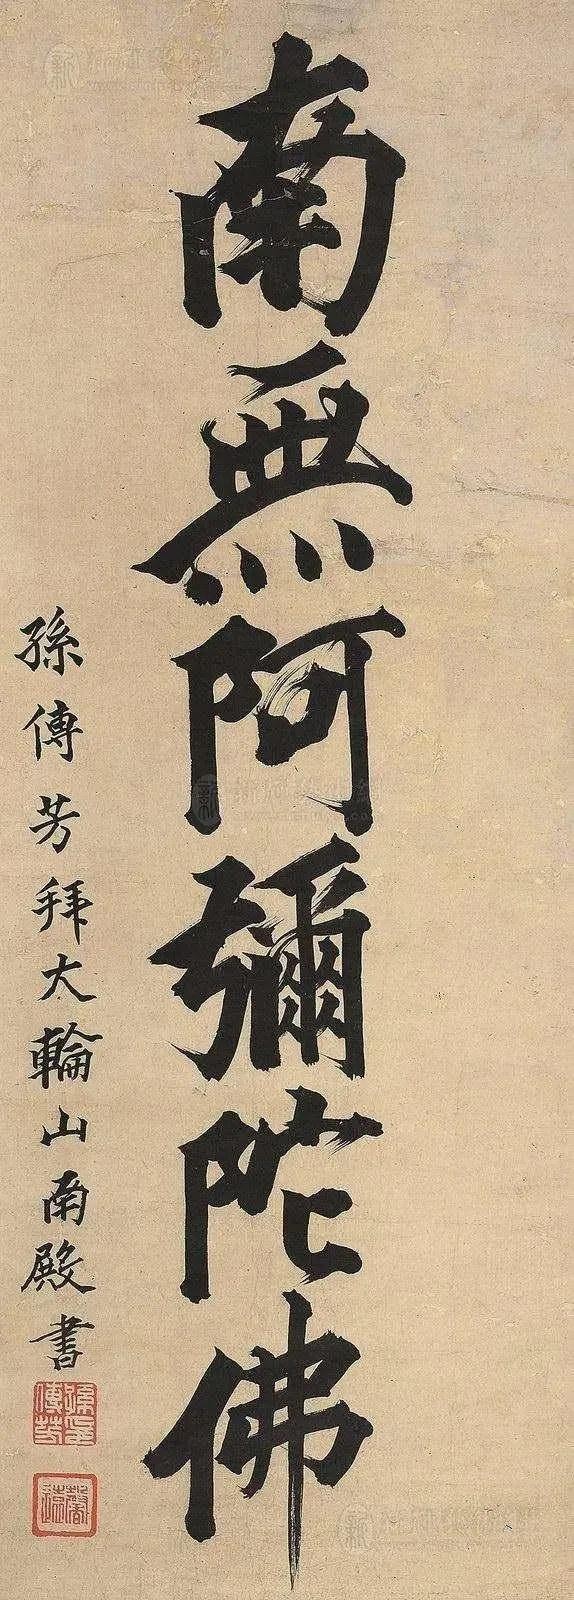 南無阿彌陀佛
孫傳芳拜大輪山南殿書
孫傳芳印
馨遠